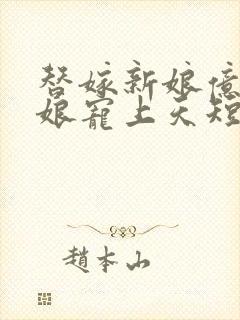 替嫁新娘億
娘寵上天短
趙本山